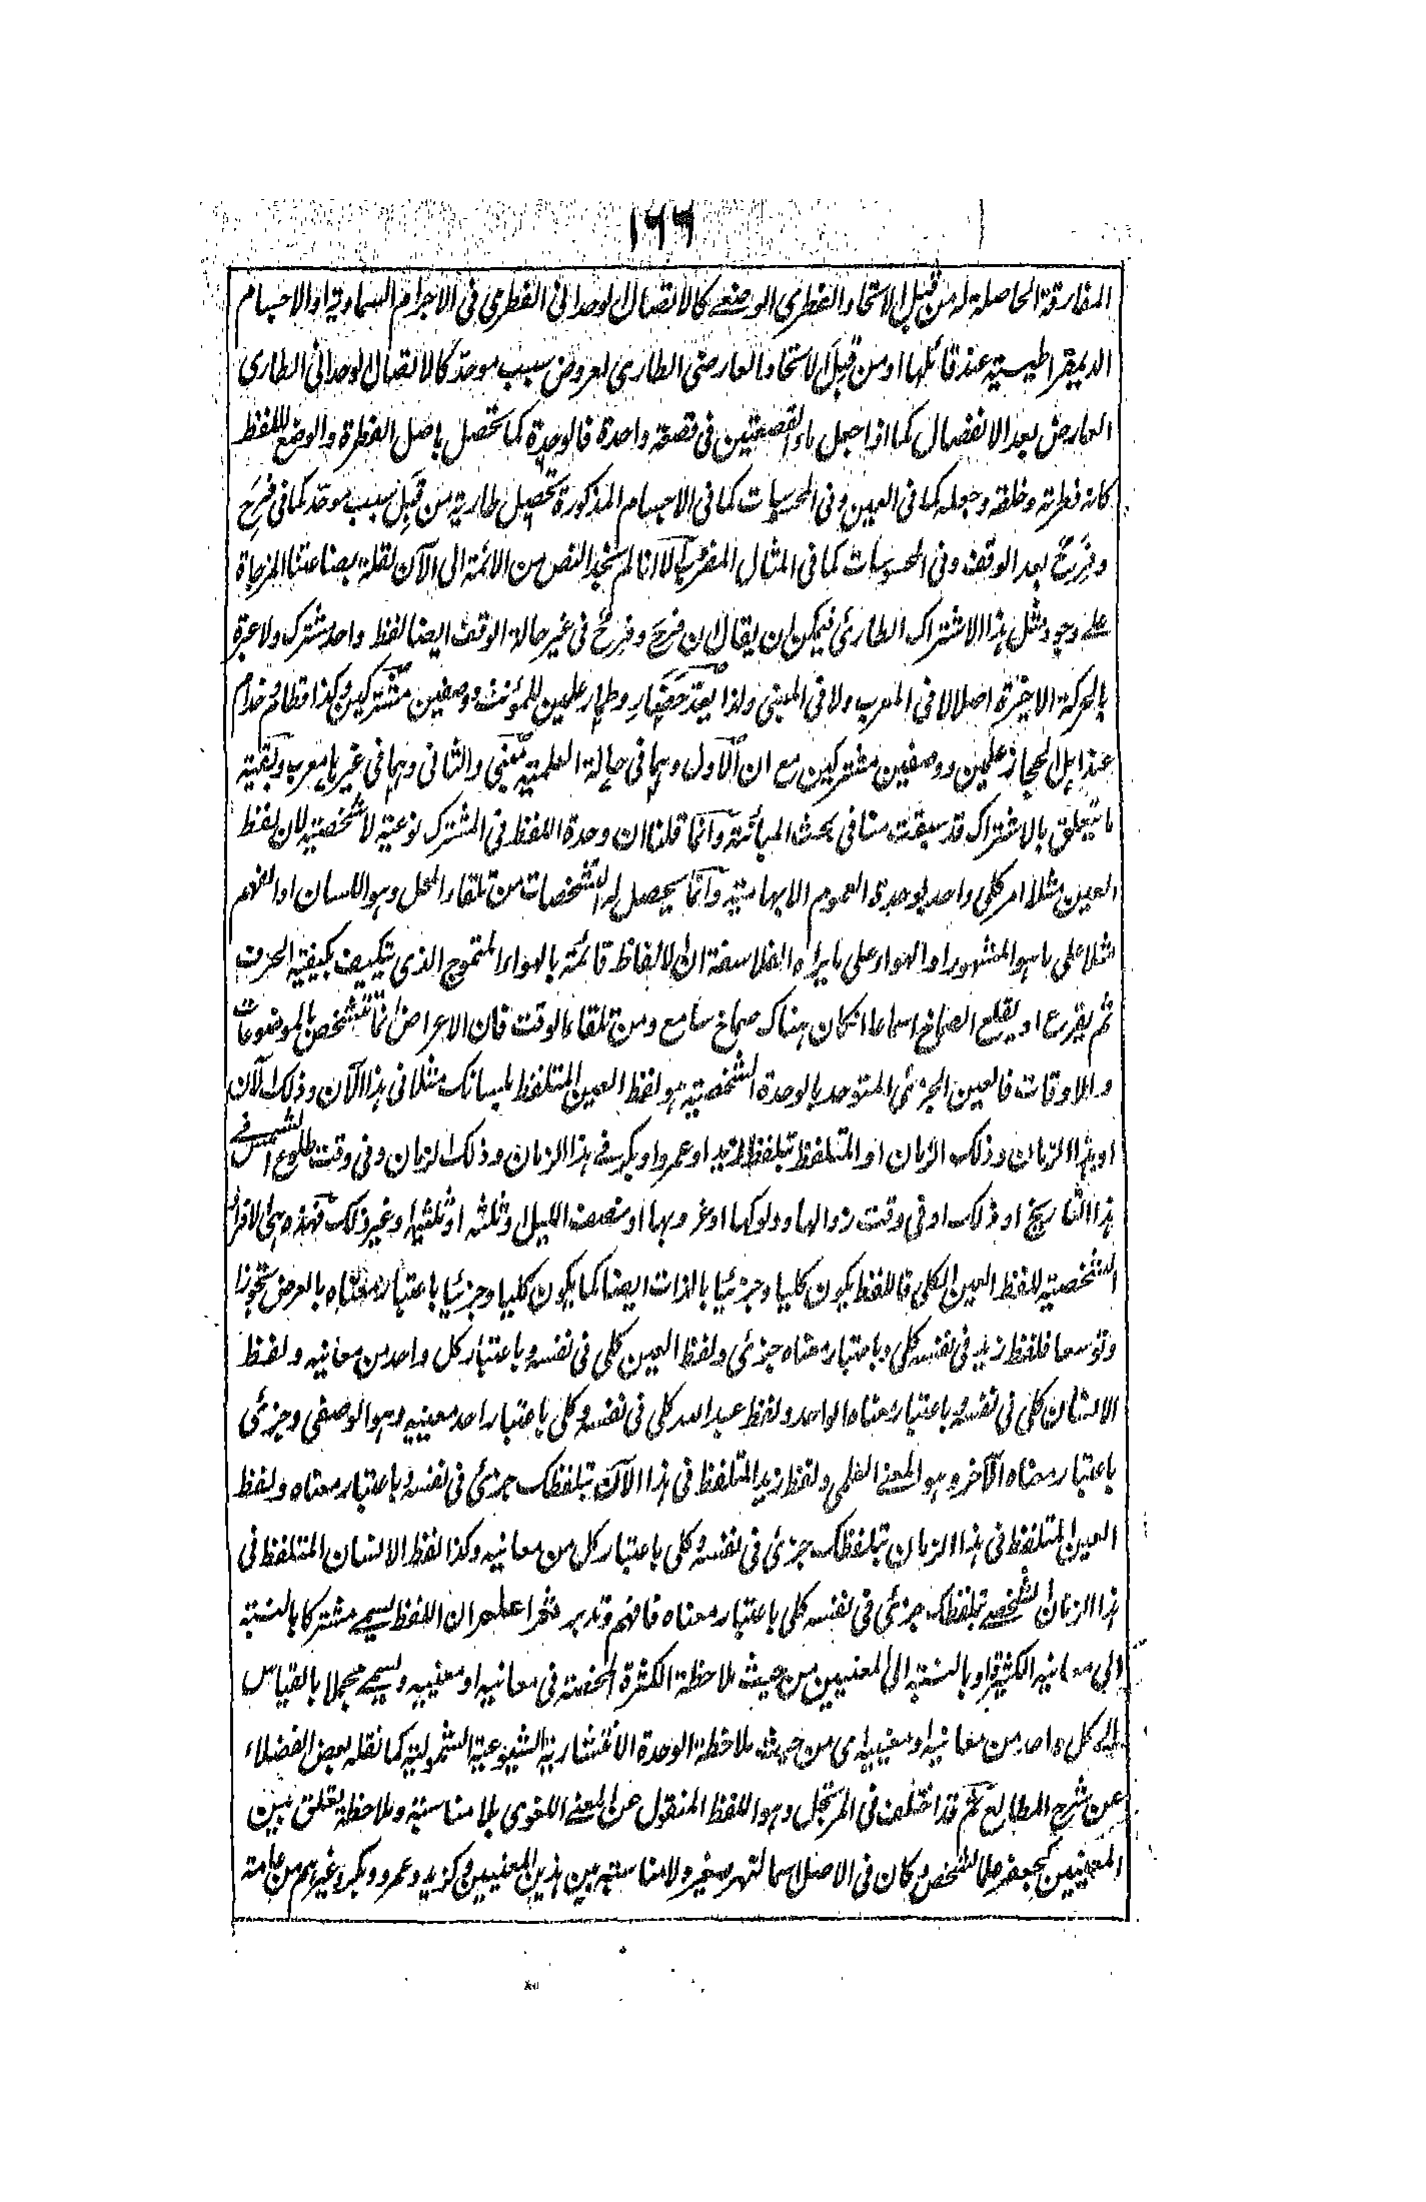 ١٦٦
المفارقة الحاصلة له من قبل الاتحاد الفطرى الوضعى كالاتصال الوحدانى الفطرى فى الاجرام السماوية او الاجسام
الديمقراطيسية عند قائلها او من قبل الاتحاد العارضى الطارى لعروض سبب موحد كالاتصال الوحدانى الطارى
العارض بعد الانفصال كما اذا جعل ماء القصعتين فى قصعة واحدة فالوحدة كما تحصل باصل الفطرة والوضع للفظ
كانه فطرته وخلقه وجعله كما فى العين وفى المحسوسات كما فى الاجسام المذكورة تحصل طارية من قبل سبب موحد كما فى فرح
وفرح بعد الوقف وفى المحسوسات كما فى المثال المفروض الا انا لم نجد النص من الائمة الى الآن لقلة بضاعتنا المزجاة
على وجود مثل هذا الاشتراك الطارئ فيمكن ان يقال ان فرح وفرح فى غير حالة الوقف ايضا لفظ واحد مشترك ولا عبرة
بالحركة الاخيرة اصلا لا فى المعرب ولا فى المبنى ولذا يعد حضار وطمار علمين للمؤنث ووصفين مشتركين وكذا قطام وحذام
عند اهل الحجاز علمين ووصفين مشتركين مع ان الاول وهما فى حالة العلمية مبنى والثانى وهما فى غيرها معرب وبقية
ما يتعلق بالاشتراك قد سبقت منا فى بحث المبائنة وانما قلنا ان وحدة اللفظ فى المشترك نوعية لا شخصية لان لفظ
العين مثلا امر كلى واحد بوحدة العموم الابهامية وانما يحصل له التشخصات من تلقاء المحل وهو اللسان او الفهم
مثلا على ما هو المشهور او الهواء على ما يراه الفلاسفة ان الالفاظ قائمة بالهواء المتموج الذى يتكيف بكيفية الحرف
ثم يقرع او يقلع الصماخ اسماعا انكان هناك صماخ سامع ومن تلقاء الوقت فان الاعراض انما تتشخص بالموضوعات
والاوقات فالعين الجزئى المتوحد بالوحدة الشخصية هو لفظ العين المتلفظ بلسانك مثلا فى هذا الآن وذلك الآن
او هذا الزمان وذلك الزمان او المتلفظ بتلفظ زيد او عمرو او بكر فى هذا الزمان وذلك الزمان وفى وقت طلوع الشمس فى
هذا التاريخ او ذلك او فى وقت زوالها ودلوكها او غروبها او نصف الليل او ثلثه او ثلثيها وغير ذلك فهذه هى الافراد
الشخصية للفظ العين الكلى فاللفظ يكون كليا وجزئيا بالذات ايضا كما يكون كليا وجزئيا باعتبار معناه بالعرض تجوزا
وتوسعا فلفظ زيد فى نفسه كلى وباعتبار معناه جزئى ولفظ العين كلى فى نفسه وباعتبار كل واحد من معانيه ولفظ
الانسان كلى فى نفسه وباعتبار معناه الواحد ولفظ عبد الله كلى فى نفسه وكلى باعتبار احد معنييه وهو الوصفى وجزئى
باعتبار معناه الآخر وهو المعنى العلمى ولفظ زيد المتلفظ فى هذا الآن بتلفظك جزئى فى نفسه وباعتبار معناه ولفظ
العين المتلفظ فى هذا الزمان بتلفظك جزئى فى نفسه وكلى باعتبار كل من معانيه وكذا لفظ الانسان المتلفظ فى
هذا الزمان الشخصى بتلفظك جزئى فى نفسه كلى باعتبار معناه فافهم وتدبر ثم اعلم ان اللفظ يسمى مشتركا بالنسبة
الى معانيه الكثيرة او بالنسبة الى المعنيين من حيث ملاحظة الكثرة المحضة فى معانيه او معنييه ويسمى مجملا بالقياس
الى كل واحد من معانيه او معنييه اى من حيث ملاحظة الوحدة الانتشارية الشيوعية الشمولية كما نقله بعض الفضلاء
عن شرح المطالع ثم قد اختلف فى المرتجل وهو اللفظ المنقول عن المعنى اللغوى بلا مناسبة وملاحظة تعلق بين
المعنيين كجعفر علما لشخص وكان فى الاصل اسما لنهر صغير ولا مناسبة بين هذين المعنيين وكزيد وعمرو وبكر وغيرهم من عامة